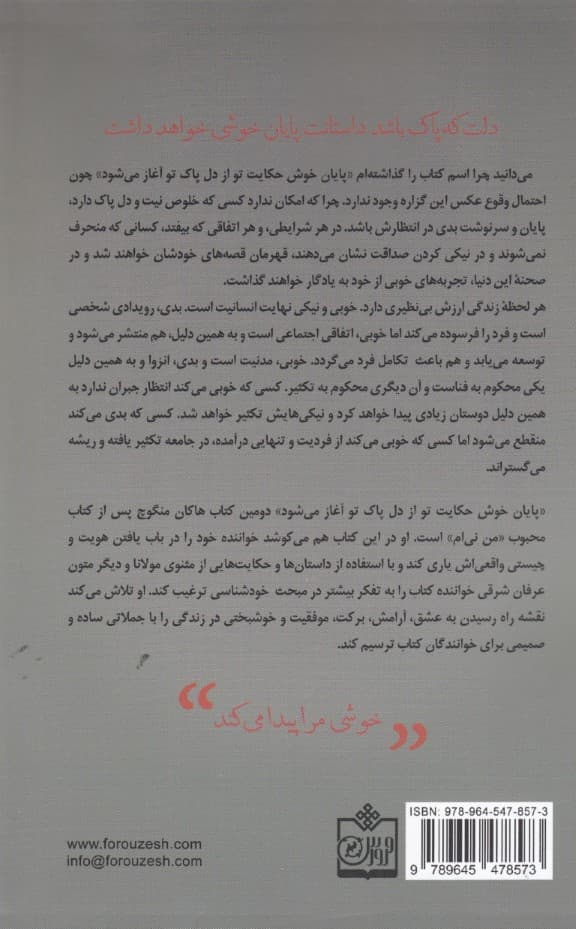 دلت که پاک باشد داستانت پایان خوشی خواهد داشت
می‌دانید چرا اسم کتاب را گذاشته‌ام «پایان خوش حکایت تو از دل پاک تو آغاز می‌شود» چون
احتمال وقوع عکس این گزاره وجود ندارد. چرا که امکان ندارد کسی که خلوص نیت و دل پاک دارد،
پایان و سرنوشت بدی در انتظارش باشد. در هر شرایطی، و هر اتفاقی که بیفتد، کسانی که منحرف
نمی‌شوند و در نیکی کردن صداقت نشان می‌دهند، قهرمان قصه‌های خودشان خواهند شد و در
صحنهٔ این دنیا، تجربه‌های خوبی از خود به یادگار خواهند گذاشت.
هر لحظهٔ زندگی ارزش بی‌نظیری دارد. خوبی و نیکی نهایت انسانیت است. بدی، رویدادی شخصی
است و فرد را فرسوده می‌کند اما خوبی، اتفاقی اجتماعی است و به همین دلیل، هم منتشر می‌شود و
توسعه می‌یابد و هم باعث تکامل فرد می‌گردد. خوبی، مدنیت است و بدی، انزوا و به همین دلیل
یکی محکوم به فناست و آن دیگری محکوم به تکثیر. کسی که خوبی می‌کند انتظار جبران ندارد به
همین دلیل دوستان زیادی پیدا خواهد کرد و نیکی‌هایش تکثیر خواهد شد. کسی که بدی می‌کند
منقطع می‌شود اما کسی که خوبی می‌کند از فردیت و تنهایی درآمده، در جامعه تکثیر یافته و ریشه
می‌گستراند.
«پایان خوش حکایت تو از دل پاک تو آغاز می‌شود» دومین کتاب هاکان منگوچ پس از کتاب
محبوب «من نی‌ام» است. او در این کتاب هم می‌کوشد خواننده خود را در باب یافتن هویت و
چیستی واقعی‌اش یاری کند و با استفاده از داستان‌ها و حکایت‌هایی از مثنوی مولانا و دیگر متون
عرفان شرقی خواننده کتاب را به تفکر بیشتر در مبحث خودشناسی ترغیب کند. او تلاش می‌کند
نقشه راه رسیدن به عشق، آرامش، برکت، موفقیت و خوشبختی در زندگی را با جملاتی ساده و
صمیمی برای خوانندگان کتاب ترسیم کند.
“خوشی مرا پیدا می‌کند”
ISBN: 978-964-547-857-3
9 789645 478573
فروزش
www.forouzesh.com
info@forouzesh.com